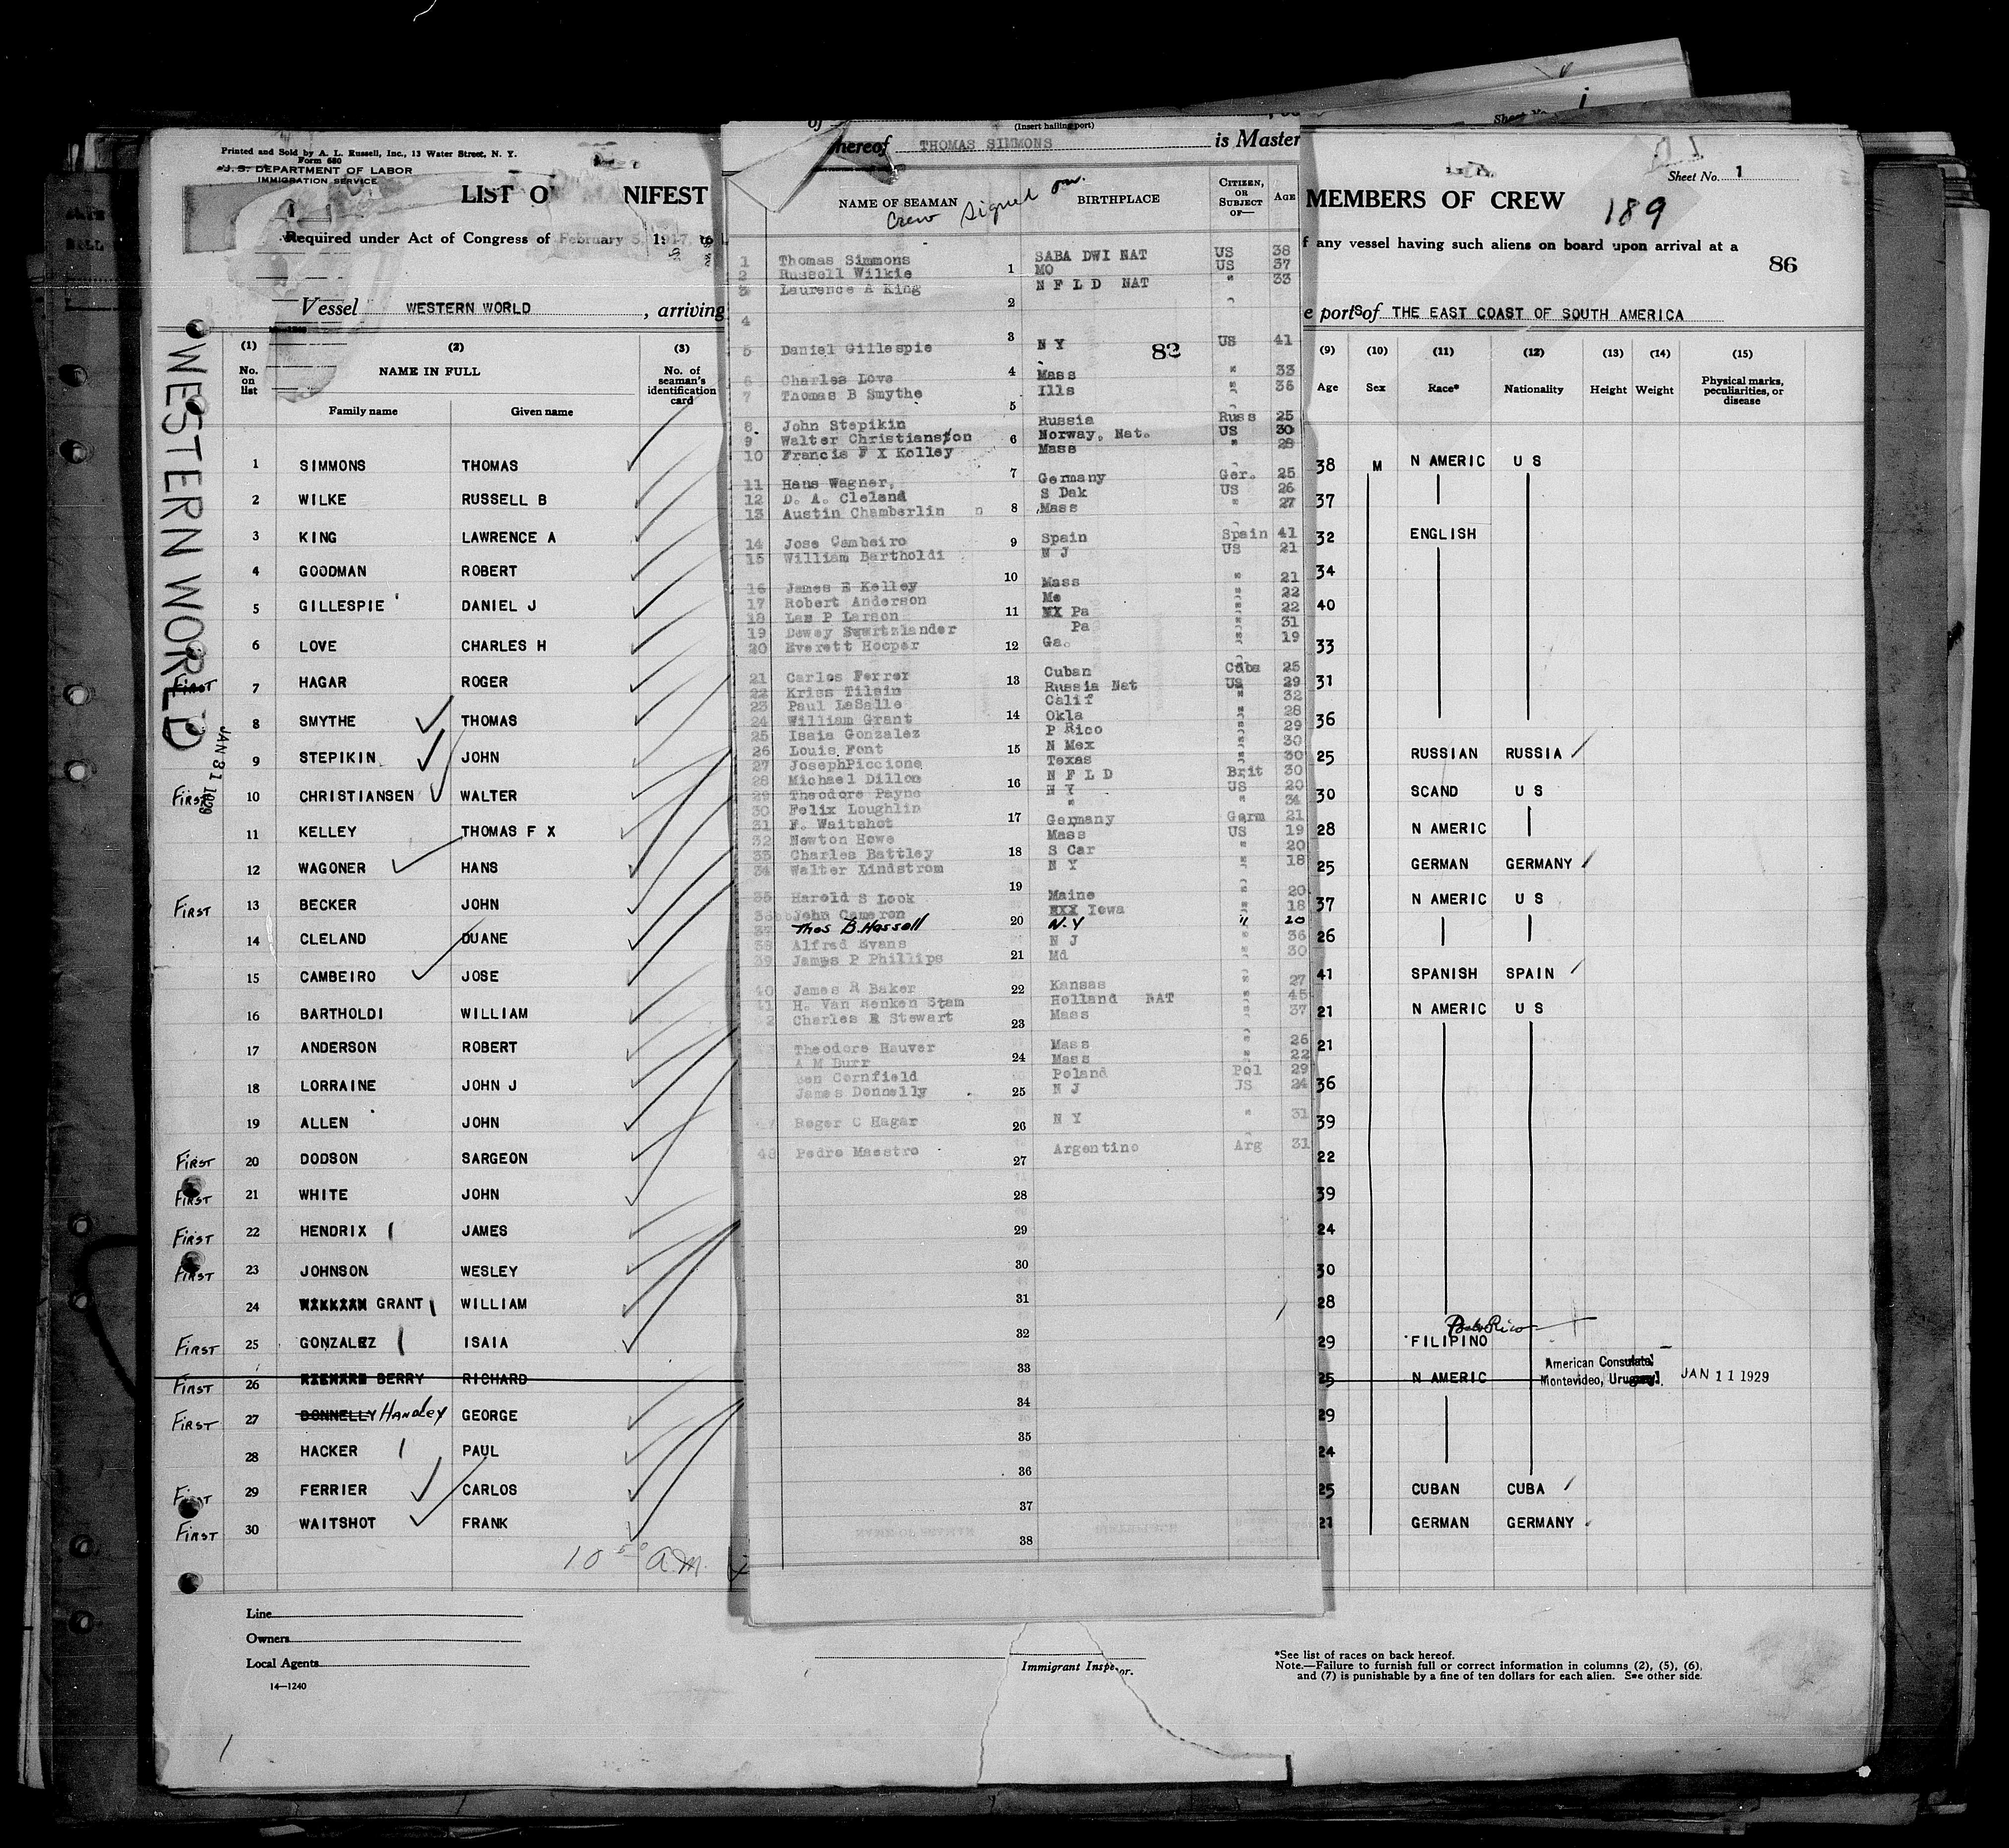 Printed and Sold by A. L. Russell, Inc., 13 Water Street, N. Y.
Form 680
U. S. DEPARTMENT OF LABOR
IMMIGRATION SERVICE
LIST O NIFEST
Required under Act of Congress of February 5, 1917, to
Vessel WESTERN WORLD, arriving
WESTERN WORLD
JAN 31 1929
(1) (2) (3)
No. on list NAME IN FULL No. of seaman's identification card
Family name Given name
1 SIMMONS THOMAS
2 WILKE RUSSELL B
3 KING LAWRENCE A
4 GOODMAN ROBERT
5 GILLESPIE DANIEL J
6 LOVE CHARLES H
First 7 HAGAR ROGER
8 SMYTHE THOMAS
9 STEPIKIN JOHN
First 10 CHRISTIANSEN WALTER
11 KELLEY THOMAS F X
12 WAGONER HANS
First 13 BECKER JOHN
14 CLELAND DUANE
15 CAMBEIRO JOSE
16 BARTHOLDI WILLIAM
17 ANDERSON ROBERT
18 LORRAINE JOHN J
19 ALLEN JOHN
First 20 DODSON SARGEON
First 21 WHITE JOHN
First 22 HENDRIX JAMES
First 23 JOHNSON WESLEY
24 GRANT WILLIAM
First 25 GONZALEZ ISAIA
First 26 BERRY RICHARD
First 27 DONNELLY Handley GEORGE
28 HACKER PAUL
First 29 FERRIER CARLOS
First 30 WAITSHOT FRANK
10 50 a.m.
Line
Owners
Local Agents
14—1240
1
of
(Insert hailing port)
hereof THOMAS SIMMONS is Master
NAME OF SEAMAN BIRTHPLACE CITIZEN, OR SUBJECT OF— AGE
Crew Signed on.
1 Thomas Simmons SABA DWI NAT US 38
2 Russell Wilkie 1 MO US 37
3 Laurence A King N F L D NAT " 33
2
4
3
5 Daniel Gillespie N Y 82 US 41
6 Charles Love 4 Mass " 33
7 Thomas B Smythe Ills " 36
5
8 John Stepikin Russia Russ 25
9 Walter Christianston 6 Norway, Nat. US 30
10 Francis F X Kelley Mass " 28
11 Haus Wagner, 7 Germany Ger. 25
12 D. A. Cleland S Dak US 26
13 Austin Chamberlin n 8 Mass " 27
14 Jose Cambeiro 9 Spain Spain 41
15 William Bartholdi N J US 21
16 James E Kelley 10 Mass " 21
17 Robert Anderson Me " 22
18 Lam P Larson 11 Pa " 22
19 Dewey Swartzlander Pa " 31
20 Everett Hooper 12 Ga. " 19
21 Carlos Ferrer Cuban Cuba 25
22 Kriss Tilsin 13 Russia Nat US 29
23 Paul LaSalle Calif " 32
24 William Grant 14 Okla " 28
25 Isaia Gonzalez P Rico " 29
26 Louis Font 15 N Mex " 30
27 JosephPiccione Texas " 30
28 Michael Dillon 16 N F L D Brit 30
29 Theodore Payne N Y US 20
30 Felix Loughlin " " 34
31 F. Waitshot 17 Germany Germ 21
32 Newton Howe Mass US 19
33 Charles Battley 18 S Car " 20
34 Walter Lindstrom N Y " 18
19
35 Harold S Look Maine " 20
36 John Cameron Iowa " 18
37 Thos B. Hassell 20 N.Y " 20
38 Alfred Evans N J " 36
39 James P Phillips 21 Md " 30
40 James R Baker 22 Kansas " 27
41 H. Van Renken Stam Holland NAT " 45
42 Charles E Stewart 23 Mass " 37
Theodore Hauver Mass " 26
A M Burr 24 Mass " 22
Ben Cornfield Poland Pol 29
James Donnelly 25 N J US 24
47 Roger C Hagar 26 N Y " 31
48 Pedro Maestro 27 Argentino Arg 31
28
29
30
31
32
33
34
35
36
37
38
Immigrant Inspector.
Sheet No.
Sheet No. 1
MEMBERS OF CREW 189
f any vessel having such aliens on board upon arrival at a
86
e ports of THE EAST COAST OF SOUTH AMERICA
(9) (10) (11) (12) (13) (14) (15)
Age Sex Race* Nationality Height Weight Physical marks, peculiarities, or disease
38 M N AMERIC U S
37
32 ENGLISH
34
40
33
31
36
25 RUSSIAN RUSSIA
30 SCAND U S
28 N AMERIC
25 GERMAN GERMANY
37 N AMERIC U S
26
41 SPANISH SPAIN
21 N AMERIC U S
21
36
39
22
39
24
30
28
Porto Rico
29 FILIPINO
25 N AMERIC American Consulate Montevideo, Uruguay. JAN 11 1929
29
24
25 CUBAN CUBA
21 GERMAN GERMANY
*See list of races on back hereof.
Note.—Failure to furnish full or correct information in columns (2), (5), (6),
and (7) is punishable by a fine of ten dollars for each alien. See other side.